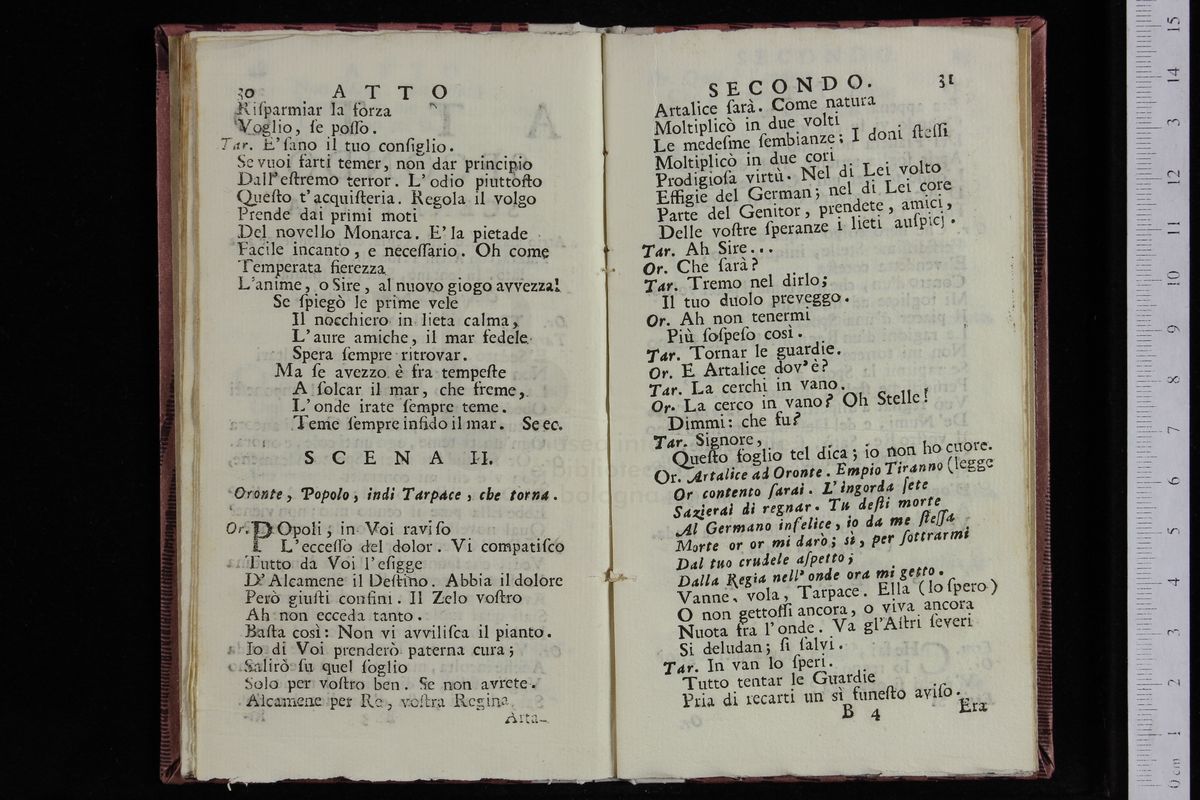 30 ATTO
Riſparmiar la forza
Voglio, ſe poſſo.
Tar. E' ſano il tuo conſiglio.
Se vuoi farti temer, non dar principio
Dall' eſtremo terror. L' odio piuttoſto
Queſto t' acquiſteria. Regola il volgo
Prende dai primi moti
Del novello Monarca. E' la pietade
Facile incanto, e neceſſario. Oh come
Temperata fierezza
L'anime, o Sire, al nuovo giogo avvezza!
Se ſpiegò le prime vele
Il nocchiero in lieta calma,
L' aure amiche, il mar fedele
Spera ſempre ritrovar.
Ma ſe avezzo è fra tempeſte
A ſolcar il mar, che freme,
L' onde irate ſempre teme.
Teme ſempre infido il mar. Se ec.
SCENA II.
Oronte, Popolo, indi Tarpace, che torna.
Or. POpoli, in Voi raviſo
L' ecceſſo del dolor. Vi compatiſco
Tutto da Voi l' eſigge
D' Alcamene il Deſtino. Abbia il dolore
Però giuſti confini. Il Zelo voſtro
Ah non ecceda tanto.
Baſta così: Non vi avviliſca il pianto.
Io di Voi prenderò paterna cura;
Salirò ſu quel ſoglio
Solo per voſtro ben. Se non avrete
Alcamene per Re, voſtra Regina
Arta-
SECONDO. 31
Artalice ſarà. Come natura
Moltiplicò in due volti
Le medeſme ſembianze; I doni ſteſſi
Moltiplicò in due cori
Prodigioſa virtù. Nel di Lei volto
Effigie del German; nel di Lei core
Parte del Genitor, prendete, amici,
Delle voſtre ſperanze i lieti auſpicj.
Tar. Ah Sire...
Or. Che ſarà?
Tar. Tremo nel dirlo;
Il tuo duolo preveggo.
Or. Ah non tenermi
Più ſoſpeſo così.
Tar. Tornar le guardie.
Or. E Artalice dov'è?
Tar. La cerchi in vano.
Or. La cerco in vano? Oh Stelle!
Dimmi: che fu?
Tar. Signore,
Queſto foglio tel dica; io non ho cuore.
Or. Artalice ad Oronte. Empio Tiranno (legge
Or contento ſarai. L' ingorda ſete
Sazierai di regnar. Tu deſti morte
Al Germano infelice, io da me ſteſſa
Morte or or mi darò; sì, per ſottrarmi
Dal tuo crudele aſpetto;
Dalla Regia nell' onde ora mi getto.
Vanne, vola, Tarpace. Ella (lo ſpero)
O non gettoſſi ancora, o viva ancora
Nuota fra l' onde. Va gl'Aſtri ſeveri
Si deludan; ſi ſalvi.
Tar. In van lo ſperi.
Tutto tentar le Guardie
Pria di recarti un sì funeſto aviſo.
B 4 Era